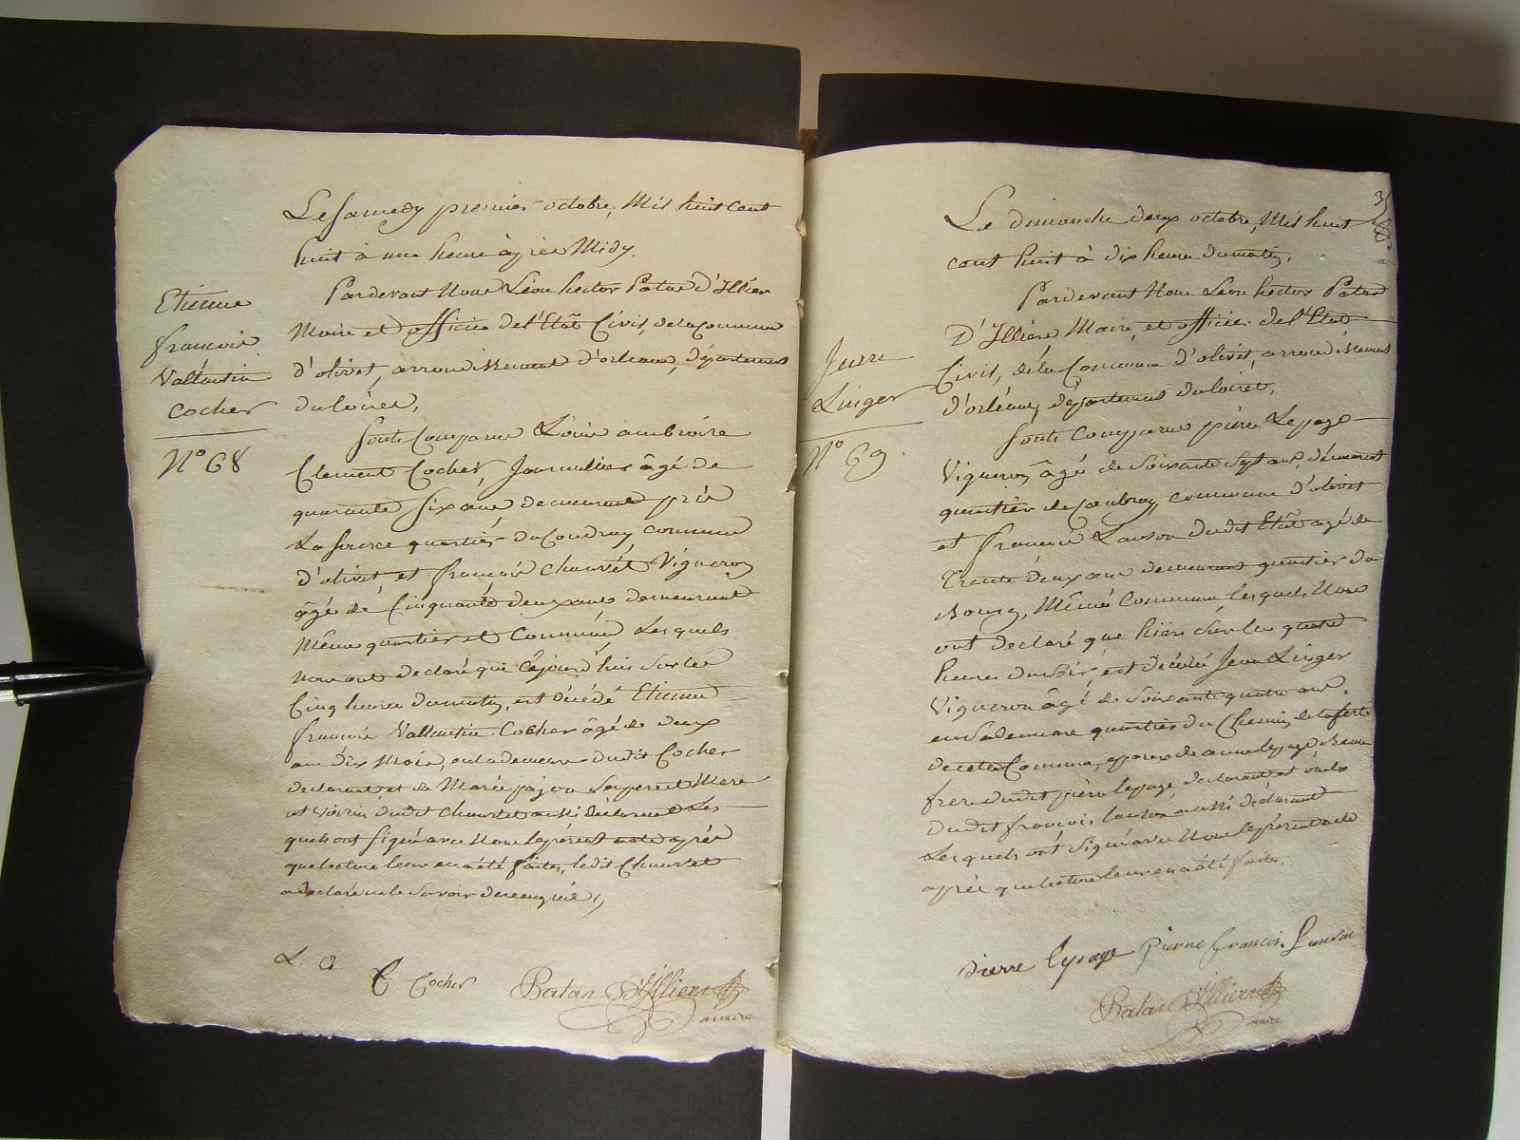 Etienne
francois
Vallantin
Cocher
N° 68
Le Samedy premier octobre, Mil huit Cent
huit à une heure àprès Midy.
Pardevant Nous Léon hector Patas D'Illiers
Maire et officier de l'Etat Civil de la Commune
d'olivet, arrondissement d'orléans, département
du loiret,
Sont Comparus Louis ambroise
Clement Cocher, Journalier âgé de
quarante six ans demeurant près
La Source quartier du Coudray commune
d'olivet, et francois Chauvét Vigneron
âgé de Cinquante deux ans demeurant
Même quartier et Commune Lesquels
nous ont declaré que cejourd'hui sur les
Cinq heures du matin, est décédé Etienne
francois Vallantin Cocher âgé de deux
ans dix mois, en la demeure dudit Cocher
declarant et de Marie pajou ses pere et Mere
et voisin dudit Chauvet aussi Déclarant Les
quels ont signé avec Nous le présent acte après
que lecture leur en a été faite, ledit Chauvet
a déclaré ne le savoir de ce enquis,
L. a C Cocher Patas D'Illiers
maire
3
Jean
Linger
N° 69.
Le dimanche deux octobre, Mil huit
cent huit à dix heures du matin,
Pardevant Nous Léon hector Patas
D'Illiers Maire, et officier de l'Etat
Civil, de la Commune d'olivet, arrondissement
d'orléans, département du loiret,
Sont Comparus pierre Lepage
Vigneron âgé de soixante sept ans, démeurant
quartier de Caubray, commune d'olivet
et francois Lanson dudit Etat agé de
Trente deux ans demeurant quartier du
Bourg, Même Commune lesquels Nous
ont declaré que hier sur les quatre
heures du soir, est décédé Jean Linger
Vigneron âgé de soixante quatre ans,
en sa demeure quartier du Chemin de la ferté
de cette Commune, epoux de anne lepage Beau
frere dudit pierre lepage, declarant et voisin
dudit francois lanson aussi déclarant
Lesquels ont signé avec Nous le présent acte
après que lecture leur en a été faite.
Pierre lepage Pierre francois Lanson
Patas D'Illiers
maire